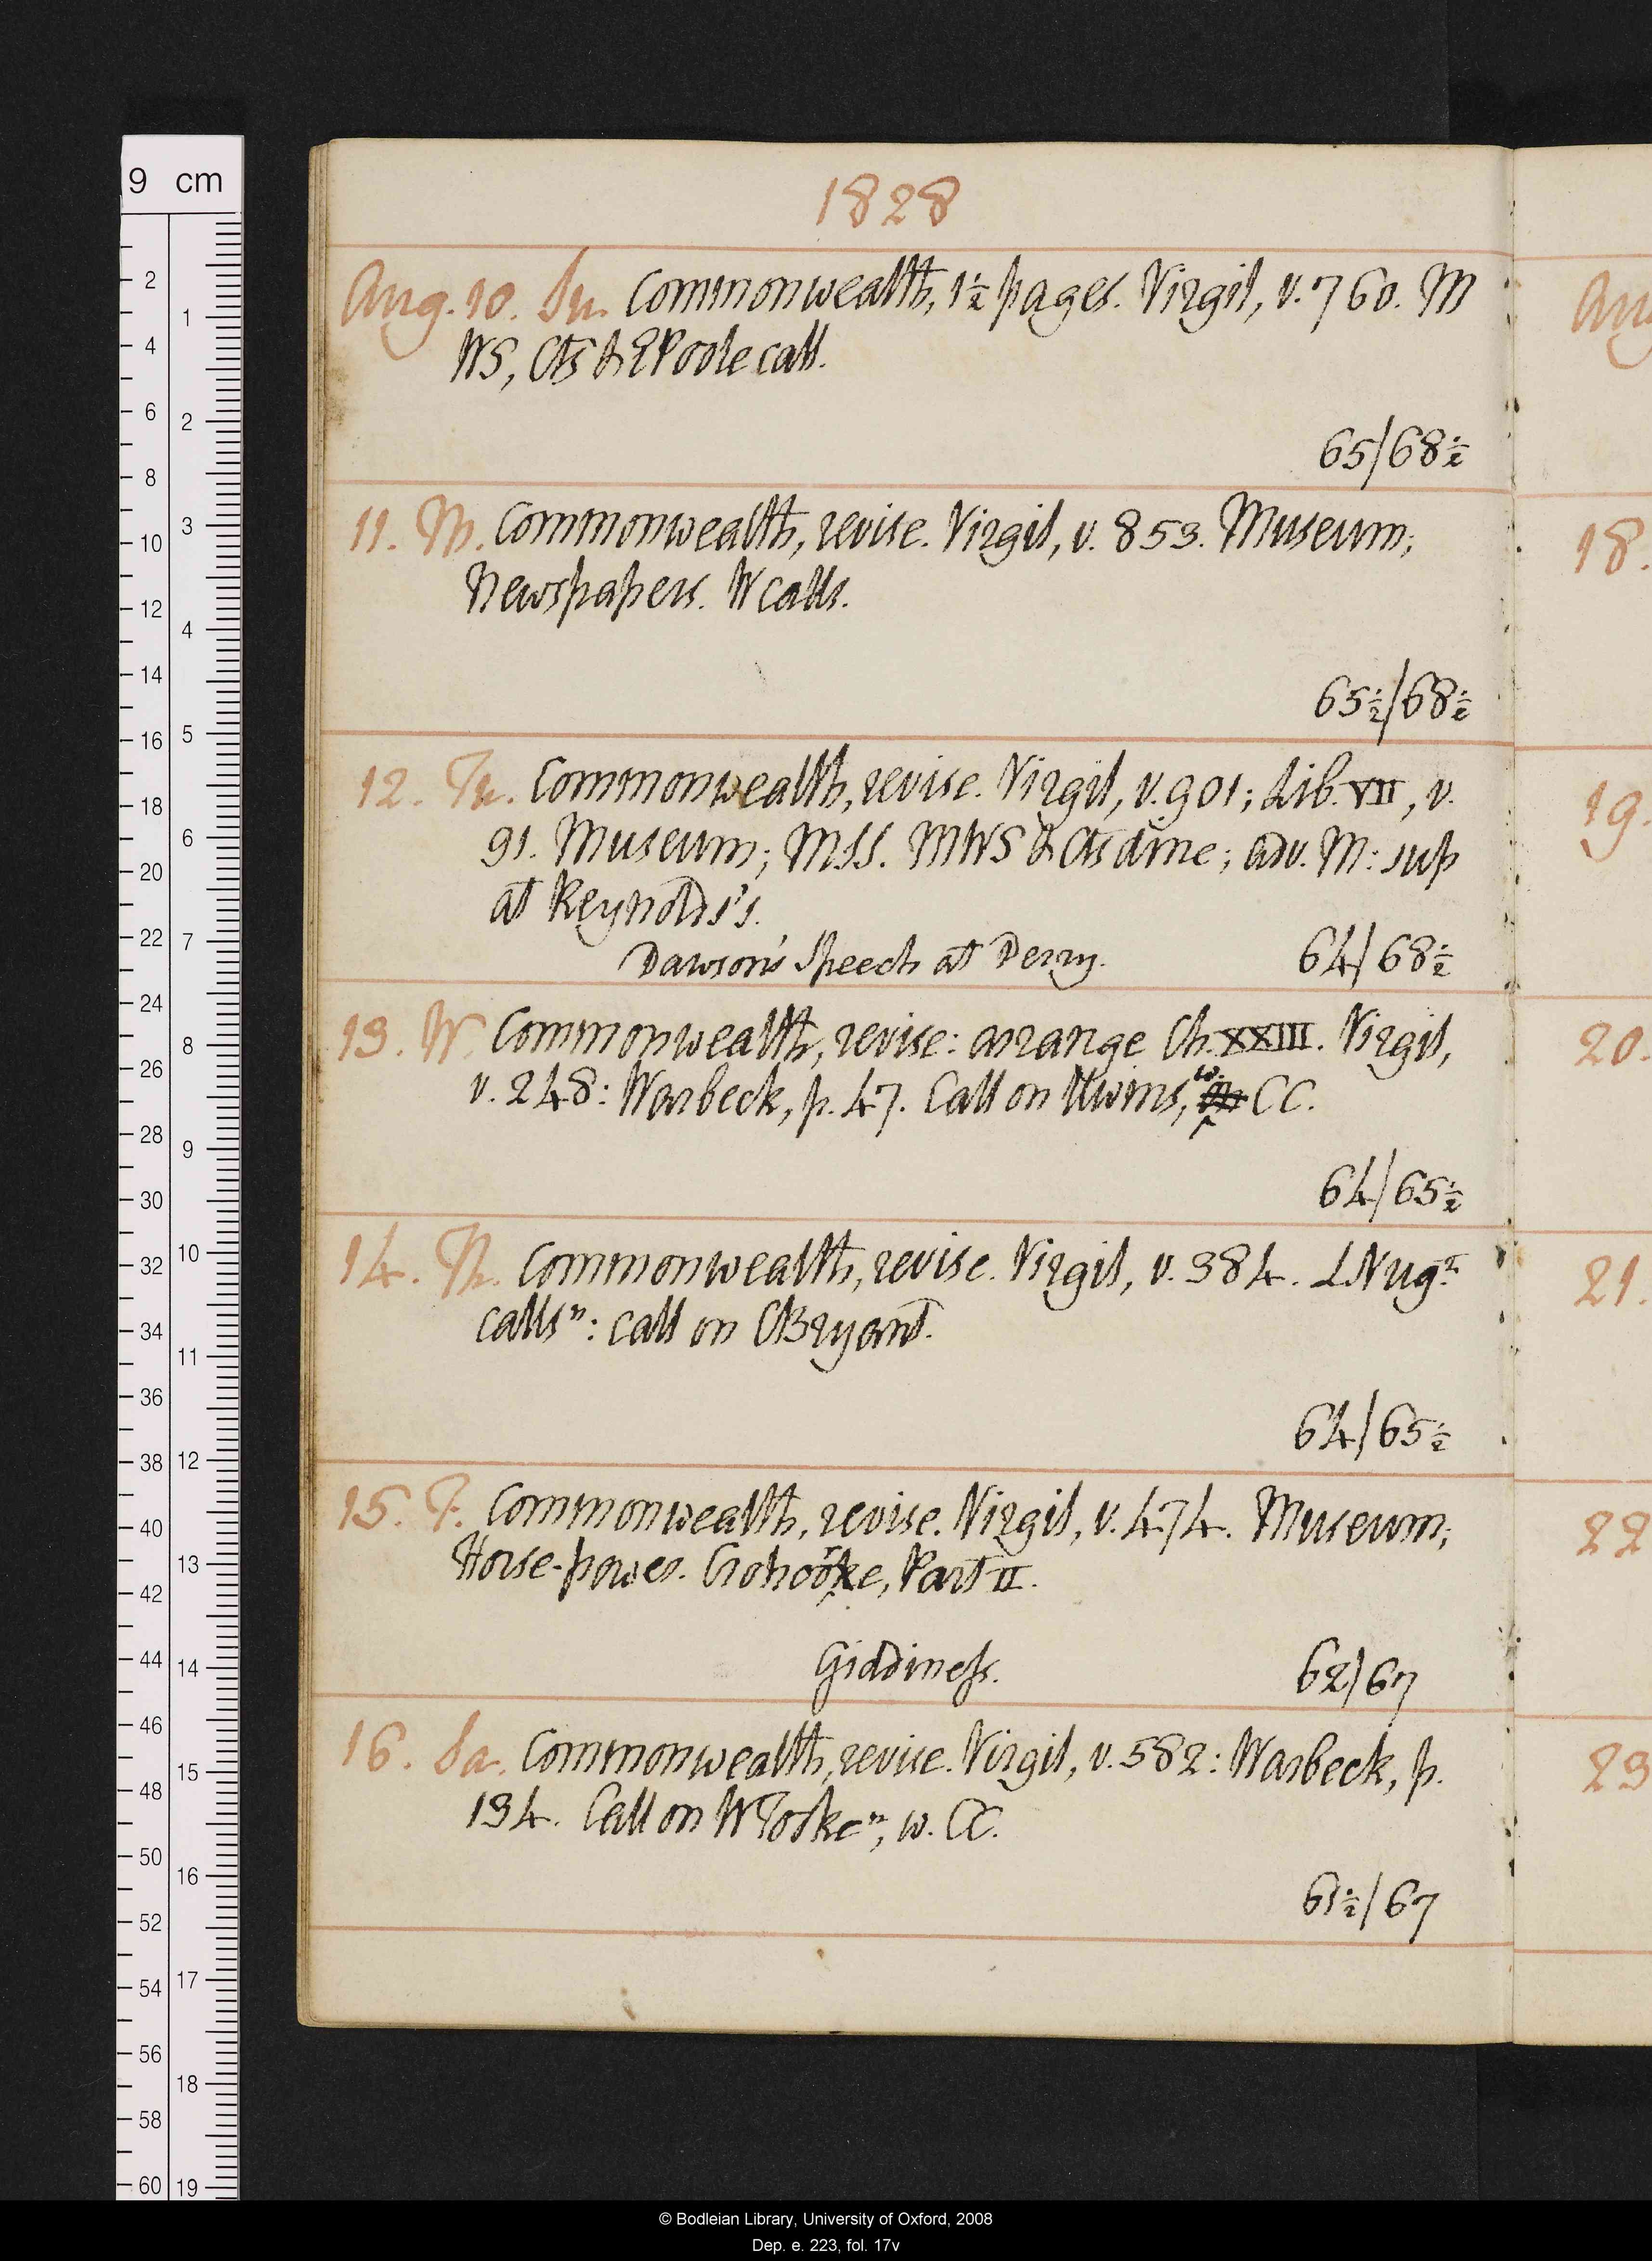 1828
Aug. 10. Su. Commonwealth, 1½ pages. Virgil, v. 760. M
WS, Cts & E Poole call.
65/68½
11. M. Commonwealth, revise. Virgil, v. 853. Museum;
Newspapers. W calls.
65½/68½
12. Tu. Commonwealth, revise. Virgil, v. 901; Lib. VII, v.
91. Museum; Mss. MWS & Cts dine; adv. M: sup
at Reynolds's.
Dawson's Speech at Derry.
64/68½
13. W. Commonwealth, revise: arrange Ch. XXIII. Virgil,
v. 248: Warbeck, p. 47. Call on Uwins, w. CC.
64/65½
14. Th. Commonwealth, revise. Virgil, v. 384. L Nugt
callsn: call on CBryant.
64/65½
15. F. Commonwealth, revise. Virgil, v. 474. Museum;
Horse-power. Part II.
Giddiness.
62/67
16. Sa. Commonwealth, revise. Virgil, v. 582: Warbeck, p.
134. Call on W Tooken, w. CC.
61½/67
Aug
18.
19.
20.
21.
22
23
9 cm
2
4
6
8
10
12
14
16
18
20
22
24
26
28
30
32
34
36
38
40
42
44
46
48
50
52
54
56
58
60
1
2
3
4
5
6
7
8
9
10
11
12
13
14
15
16
17
18
19
© Bodleian Library, University of Oxford, 2008
Dep. e. 223, fol. 17v